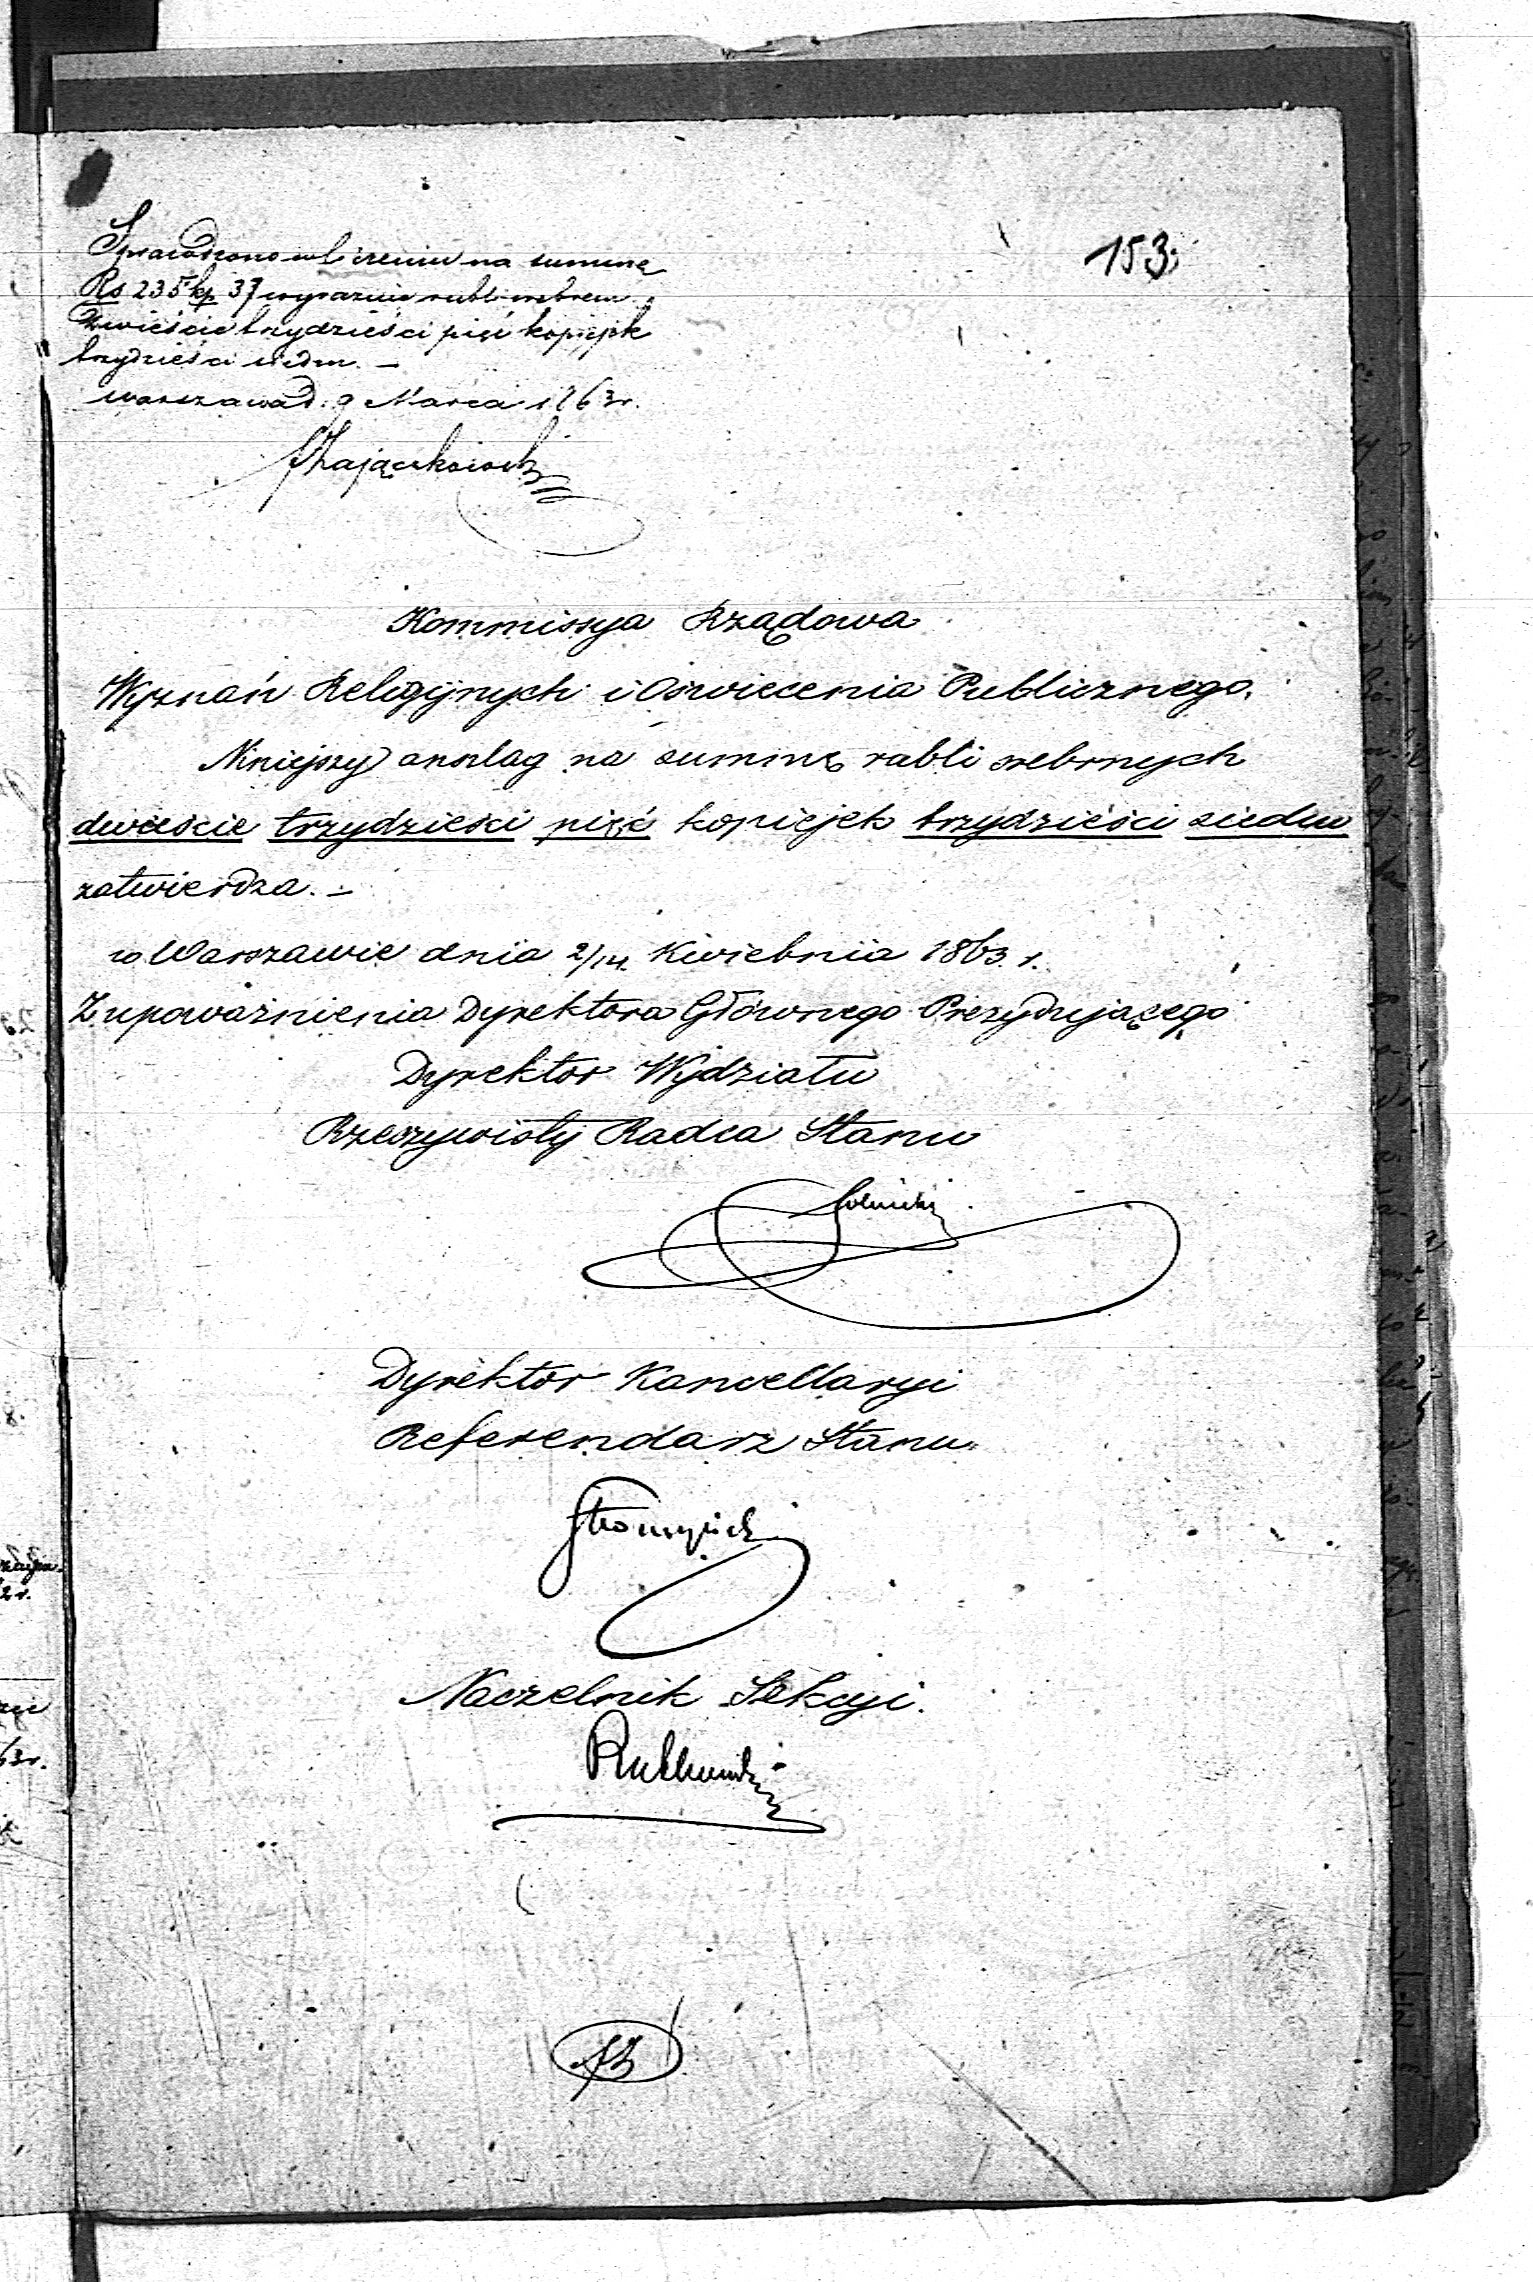 153.
Sprawdzono w obliczeniu na summę
Rs 235 kp 37 wyraźnie rubli srebrem
Dwieście trzydzieści pięć kopiejek
trzydzieści siedm. —
Warszawa d. 9 Marca 1863 r.
Zajączkowski
Kommissya Rządowa
Wyznań Religijnych i Oświecenia Publicznego.
Niniejszy anszlag na summę rubli srebrnych
dwieście trzydzieści pięć kopiejek trzydzieści siedm
zatwierdza. —
w Warszawie dnia 2/14. Kwietnia 1863. r.
Z upoważnienia Dyrektora Głównego Prezydującego
Dyrektor Wydziału
Rzeczywisty Radca Stanu
Dyrektor Kancellaryi
Referendarz Stanu
Naczelnik Sekcyi.